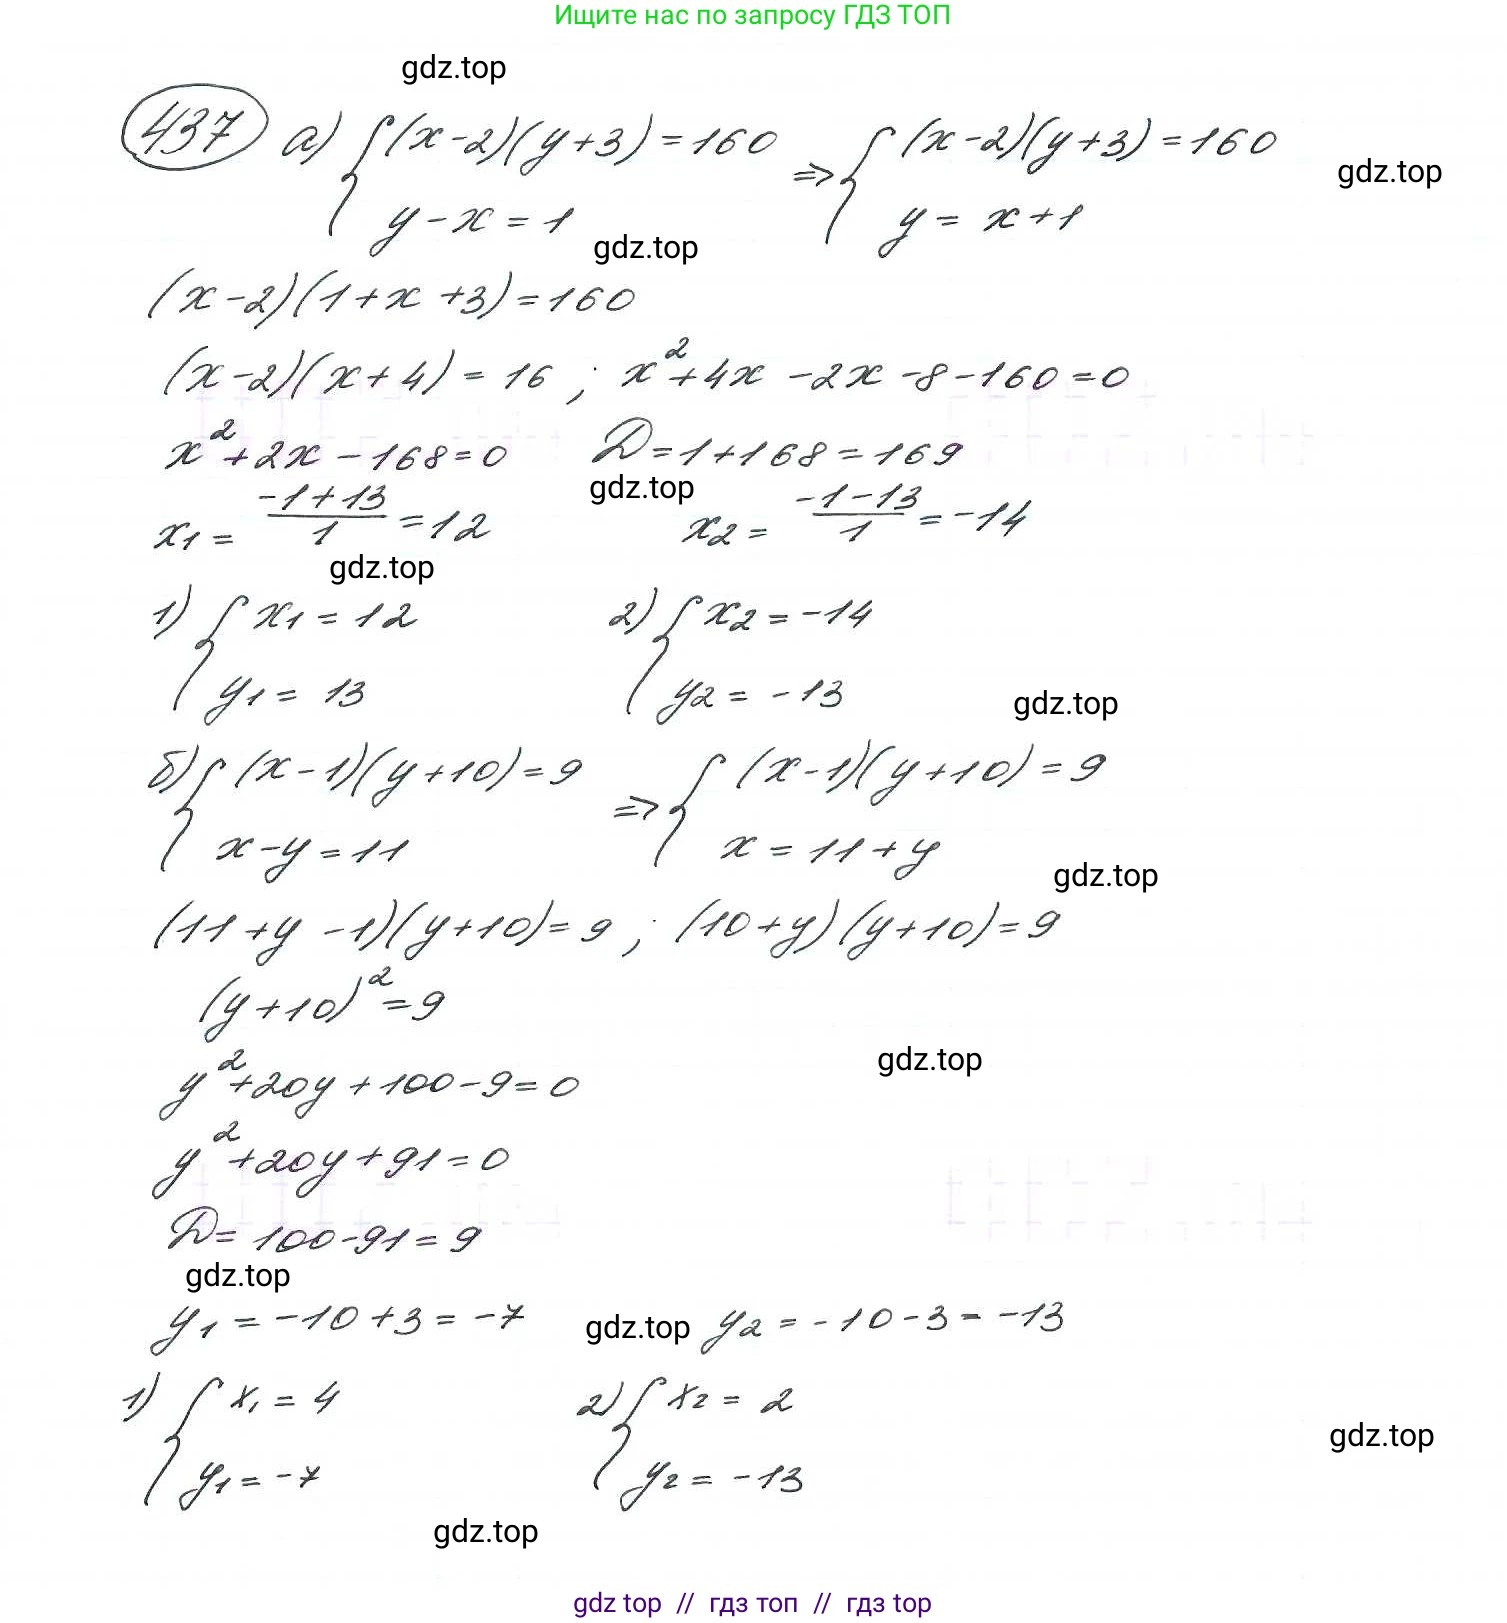 Ищите нас по запросу ГДЗ ТОП
gdz.top
437 а) { (x-2)(y+3)=160 => { (x-2)(y+3)=160
gdz.top
y-x=1 y=x+1
gdz.top
(x-2)(1+x+3)=160
(x-2)(x+4)=16 ; x²+4x-2x-8-160=0
x²+2x-168=0 D=1+168=169
gdz.top
x₁= (-1+13)/1 =12 x₂= (-1-13)/1 =-14
gdz.top
1) { x₁=12 2) { x₂=-14
y₁=13 y₂=-13
gdz.top
б) { (x-1)(y+10)=9 => { (x-1)(y+10)=9
x-y=11 x=11+y
gdz.top
(11+y-1)(y+10)=9 ; (10+y)(y+10)=9
(y+10)²=9
gdz.top
y²+20y+100-9=0
y²+20y+91=0
D=100-91=9
gdz.top
y₁=-10+3=-7 gdz.top y₂=-10-3=-13
1) { x₁=4 2) { x₂=2
gdz.top
y₁=-7 y₂=-13
gdz.top
gdz top // гдз топ // гдз top